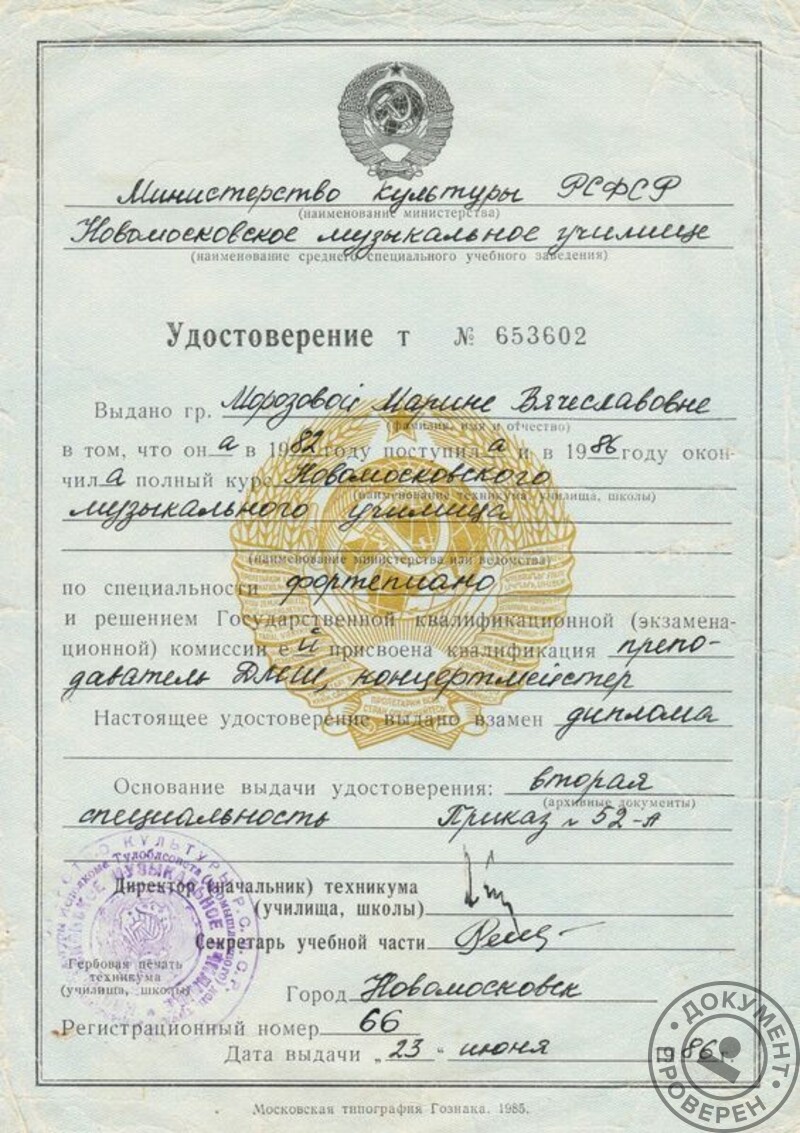 Министерство культуры РСФСР
(наименование министерства)
Новомосковское музыкальное училище
(наименование среднего специального учебного заведения)
Удостоверение т № 653602
Выдано гр. Морозовой Марине Вячеславовне
(фамилия, имя и отчество)
в том, что она в 1982 году поступила и в 1986 году окон-
чила полный курс Новомосковского
(наименование техникума, училища, школы)
музыкального училища
(наименование министерства или ведомства)
по специальности фортепиано
и решением Государственной квалификационной (экзамена-
ционной) комиссии ей присвоена квалификация препо-
даватель ДМШ, концертмейстер
ПРОЛЕТАРИИ ВСЕХ
СТРАН, СОЕДИНЯЙТЕСЬ!
Настоящее удостоверение выдано взамен диплома
Основание выдачи удостоверения: вторая
(архивные документы)
специальность Приказ № 52-А
Директор (начальник) техникума
(училища, школы)
Секретарь учебной части
Гербовая печать
техникума
(училища, школы)
Город Новомосковск
Регистрационный номер 66
Дата выдачи „23“ июня 1986 г.
Московская типография Гознака. 1985.
ДОКУМЕНТ
ПРОВЕРЕН